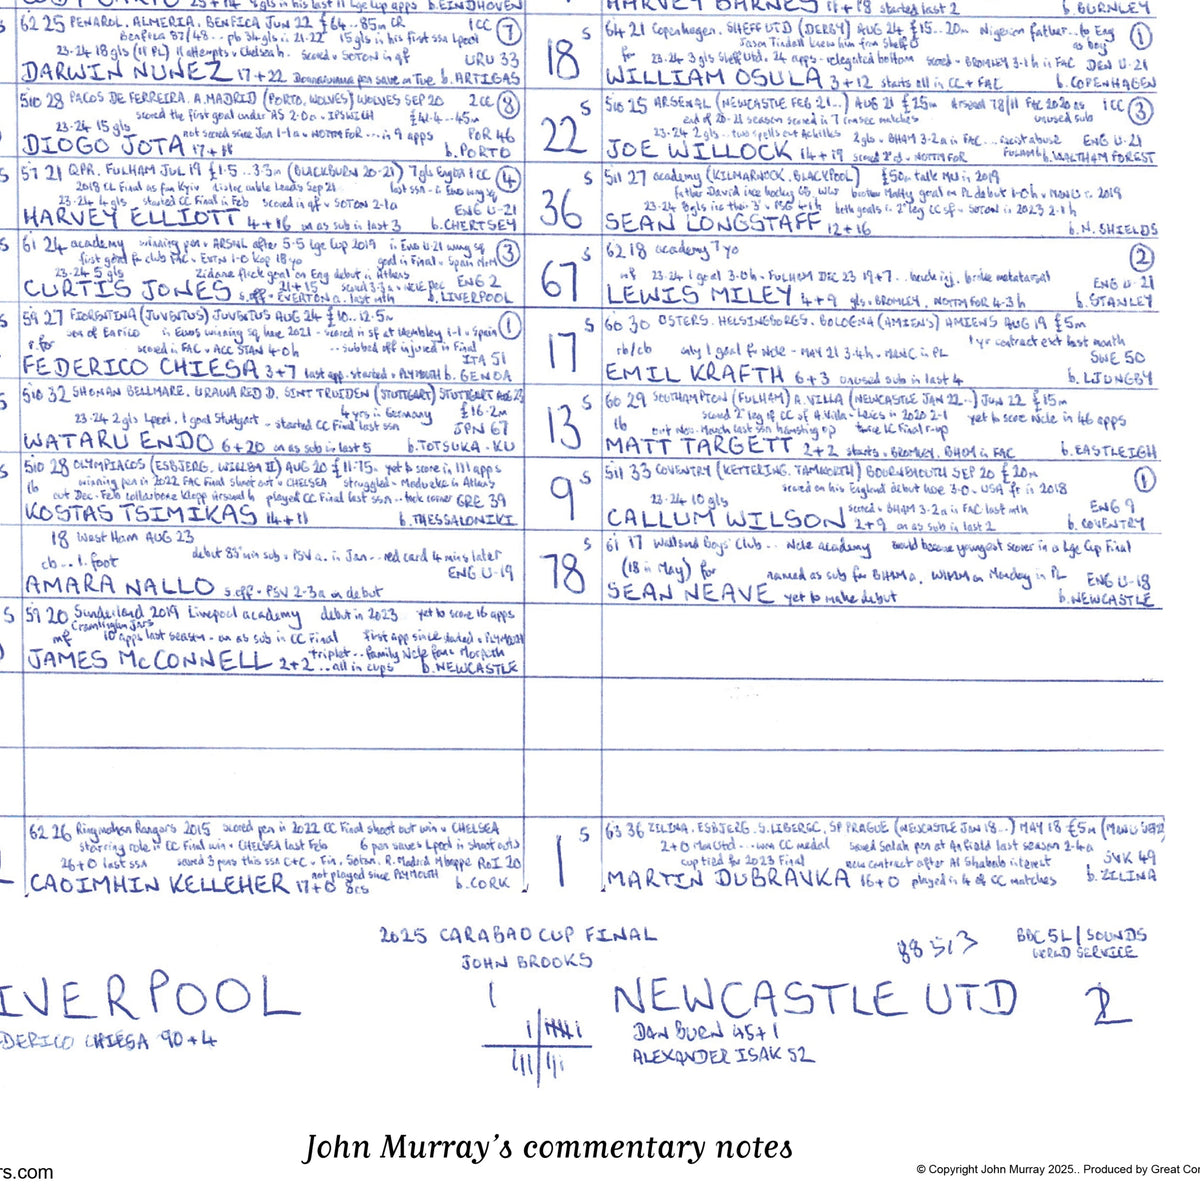 62 25 PENAROL. ALMERIA. BENFICA JUN 22 £64...85m CR 1CC 7
Benfica 87/48.. pb 34 gls in 21-22 15 gls in his first ssn Lpool
23-24 18 gls (11 PL) 11 attempts v Chelsea h. scored v SOTON in qf URU 33
DARWIN NUNEZ 17+22 Donnarumma pen save on Tue b. ARTIGAS
510 28 PACOS DE FERREIRA. A.MADRID (PORTO, WOLVES) WOLVES SEP 20 2CC 8
scored the first goal under AS 2-0a - IPSWICH £41.4...45m
23-24 15 gls not scored since Jan 1-1a v NOTTM FOR ... in 9 apps POR 46
DIOGO JOTA 17+18 b. PORTO
57 21 QPR. FULHAM JUL 19 £1.5...3.3m (BLACKBURN 20-21) 1CC 4
2018 CL Final as fan Kyiv disloc ankle Leeds Sep 21
23-24 4 gls started CC Final in Feb scored in qf v SOTON 2-1a ENG U-21
HARVEY ELLIOTT 4+16 on as sub in last 3 b. CHERTSEY
61 24 academy winning pen v ARSNL after 5-5 Lge Cup 2019 in Eng U-21 wing sq 3
first goal for club FAC v EVTN 1-0 Kop 18yo goal in Final v Spain
23-24 5 gls zidane flick goal on Eng debut in Athens ENG 2
CURTIS JONES 21+15 s.off - EVERTON a. last mth b. LIVERPOOL
59 27 FIORENTINA (JUVENTUS) JUVENTUS AUG 24 £10...12.5m 1
son of Enrico in Euros winning sq here 2021 - scored in sf at Wembley 1-1 v Spain
r.for scored in FAC v ACC STAN 4-0h ...subbed off injured in Final ITA 51
FEDERICO CHIESA 3+7 last app. started v PLYMOUTH b. GENOA
510 32 SHONAN BELLMARE. URAWA RED D. SINT TRUIDEN (STUTTGART) STUTTGART AUG 23
4 yrs in Germany £16.2m
23-24 2 gls Lpool. 1 goal Stuttgart - started CC Final last ssn JPN 67
WATARU ENDO 6+20 on as sub in last 5 b. TOTSUKA-KU
510 28 OLYMPIACOS (ESBJERG. WILLEM II) AUG 20 £11.75m yet to score in 111 apps
lb winning pen in 2022 FAC Final shoot out v CHELSEA struggled v Madueke in Athens
out Dec-Feb collarbone Klopp itssnd h played CC Final last ssn.. took corner GRE 39
KOSTAS TSIMIKAS 14+11 b. THESSALONIKI
18 West Ham AUG 23
cb... l. foot debut 83rd min sub v PSV a. in Jan... red card 4 mins later ENG U-19
AMARA NALLO s.off v PSV 2-3a on debut
59 20 Sunderland 2019 Liverpool academy debut in 2023 yet to score 16 apps
Cramlington Jnrs
mf 10 apps last season - on as sub in CC Final first app since started v PLYMOUTH
triplet... family Ncle fans Morpeth
JAMES McCONNELL 2+2 ...all in cups b. NEWCASTLE
62 26 Ringmahon Rangers 2015 scored pen in 2022 CC Final shoot out win v CHELSEA
starring role in CC Final win v CHELSEA last Feb 6 pen saves Lpool in shoot outs
26+0 last ssn saved 3 pens this ssn C+C v Fin, Soton. R.Madrid Mbappe RoI 20
CAOIMHIN KELLEHER 17+0 8cs not played since PLYMOUTH b. CORK
HARVEY BARNES 11+18 started last 2 b. BURNLEY
18 s 64 21 Copenhagen. SHEFF UTD (DERBY) AUG 24 £15...20m Nigerian father...to Eng as boy 1
Jason Tindall knew him from Sheff U
for 23-24 3 gls Sheff Utd. 24 apps - relegated bottom scored v BROMLEY 3-1h in FAC DEN U-21
WILLIAM OSULA 3+12 starts all in CC + FAC b. COPENHAGEN
22 s 510 25 ARSENAL (NEWCASTLE FEB 21...) AUG 21 £25m Arsenal 78/11 FAC 2020 as unused sub 1CC 3
end of 20-21 season scored in 7 consec matches
23-24 2 gls... two spells out Achilles 2 gls v BHAM 3-2a in FAC... racist abuse ENG U-21
JOE WILLOCK 14+19 scored 2nd v NOTTM FOR FULHAM h b. WALTHAM FOREST
36 s 511 27 academy (KILMARNOCK. BLACKPOOL) £50m talk MU in 2019
father David ice hockey GB, WLB brother Matty goal on PL debut 1-0h v MANU in 2019
23-24 8 gls inc their 3rd v PSG 4-1h both goals in 2nd leg CC sf v SOTON in 2023 2-1h
SEAN LONGSTAFF 12+16 b. N. SHIELDS
67 s 62 18 academy 7 yo 2
mf 23-24 1 goal 3-0h v FULHAM DEC 23 19+7... back inj. broke metatarsal ENG U-21
LEWIS MILEY 4+9 gls v BROMLEY, NOTTM FOR 4-3h b. STANLEY
17 s 60 30 OSTERS. HELSINGBORGS. BOLOGNA (AMIENS) AMIENS AUG 19 £5m
1 yr contract ext last month
rb/cb only 1 goal for Ncle - MAY 21 3-4h v MANC in PL SWE 50
EMIL KRAFTH 6+3 unused sub in last 4 b. LJUNGBY
13 s 60 29 SOUTHAMPTON (FULHAM) A.VILLA (NEWCASTLE JAN 22...) JUN 22 £15m
scored 2nd leg of CC sf A.Villa - Leics in 2020 2-1 yet to score Ncle in 46 apps
lb out Nov-March last ssn hamstring op twice LC Final r-up
MATT TARGETT 2+2 starts v BROMLEY. BHAM in FAC b. EASTLEIGH
9 s 511 33 COVENTRY (KETTERING. TAMWORTH) BOURNEMOUTH SEP 20 £20m 1
scored on his England debut here 3-0 v USA fr in 2018
23-24 10 gls ENG 9
CALLUM WILSON scored v BHAM 3-2a in FAC last mth 2+9 on as sub in last 2 b. COVENTRY
78 s 61 17 Wallsend Boys' Club... Ncle academy would become youngest scorer in a Lge Cup Final
(18 in May) for named as sub for BHAM a, WHM on Monday in PL ENG U-18
SEAN NEAVE yet to make debut b. NEWCASTLE
1 s 63 36 ZILINA. ESBJERG. S.LIBEREC. SP PRAGUE (NEWCASTLE JAN 18...) MAY 18 £5m (MANU SEP 22)
2+0 Man Utd... won CC medal saved Salah pen at Anfield last season 2-4a
cup tied for 2023 Final new contract after Al Shabab interest SVK 49
MARTIN DUBRAVKA 16+0 played in 4 of CC matches b. ZILINA
2025 CARABAO CUP FINAL
JOHN BROOKS
88513
BBC 5L / SOUNDS
WORLD SERVICE
IVERPOOL 1
NEWCASTLE UTD 2
DERICO CHIESA 90+4
DAN BURN 45+1
ALEXANDER ISAK 52
John Murray's commentary notes
rs.com
© Copyright John Murray 2025.. Produced by Great Con